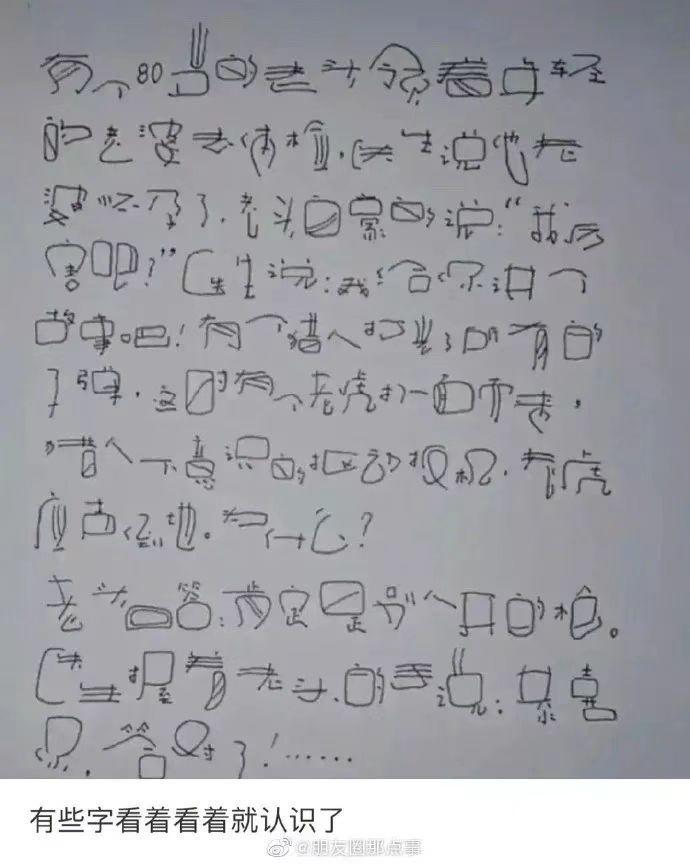 有个80岁的老头领着年轻
的老婆去体检，医生说他老
婆怀孕了，老头自豪的说：“我厉
害吧？”医生说：我给你讲一个
故事吧！有一个猎人打光了所有的
子弹，这时有个老虎扑面而来，
猎人下意识的抠动扳机，老虎
应声倒地。为什么？
老头回答：肯定是别人开的枪。
医生握着老头的手说：果真
是，答对了！……
有些字看着看着就认识了
@朋友圈那点事